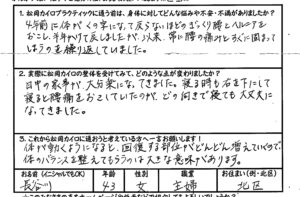 1. 松岡カイロプラクティックに通う前は、身体に対してどんな悩みや不安・不満がありましたか？
4年前に体がくの字になって戻らないほどのぎっくり腰とヘルニアを
おこし、半年かけて戻しましたが、以来、常に腰の痛みとすぐに固まって
しまうのを繰り返していました。
2. 実際に松岡カイロの整体を受けてみて、どのような点が変わりましたか？
日中の家事が大分楽になってきました。寝る時も右を下にして
寝ると腰痛をおこしていたのが、どの向きで寝ても大丈夫に
なってきました。
3. これから松岡カイロに通おうと考えている方へ一言お願いします！
体が動くようになると、回復する部位がどんどん増えていくので
体のバランスを整えてもらうのは大きな意味があります。
お名前（イニシャルでもOK） 年齢 性別 職業 お住まい（例：北区）
長谷川 43 女 主婦 北区